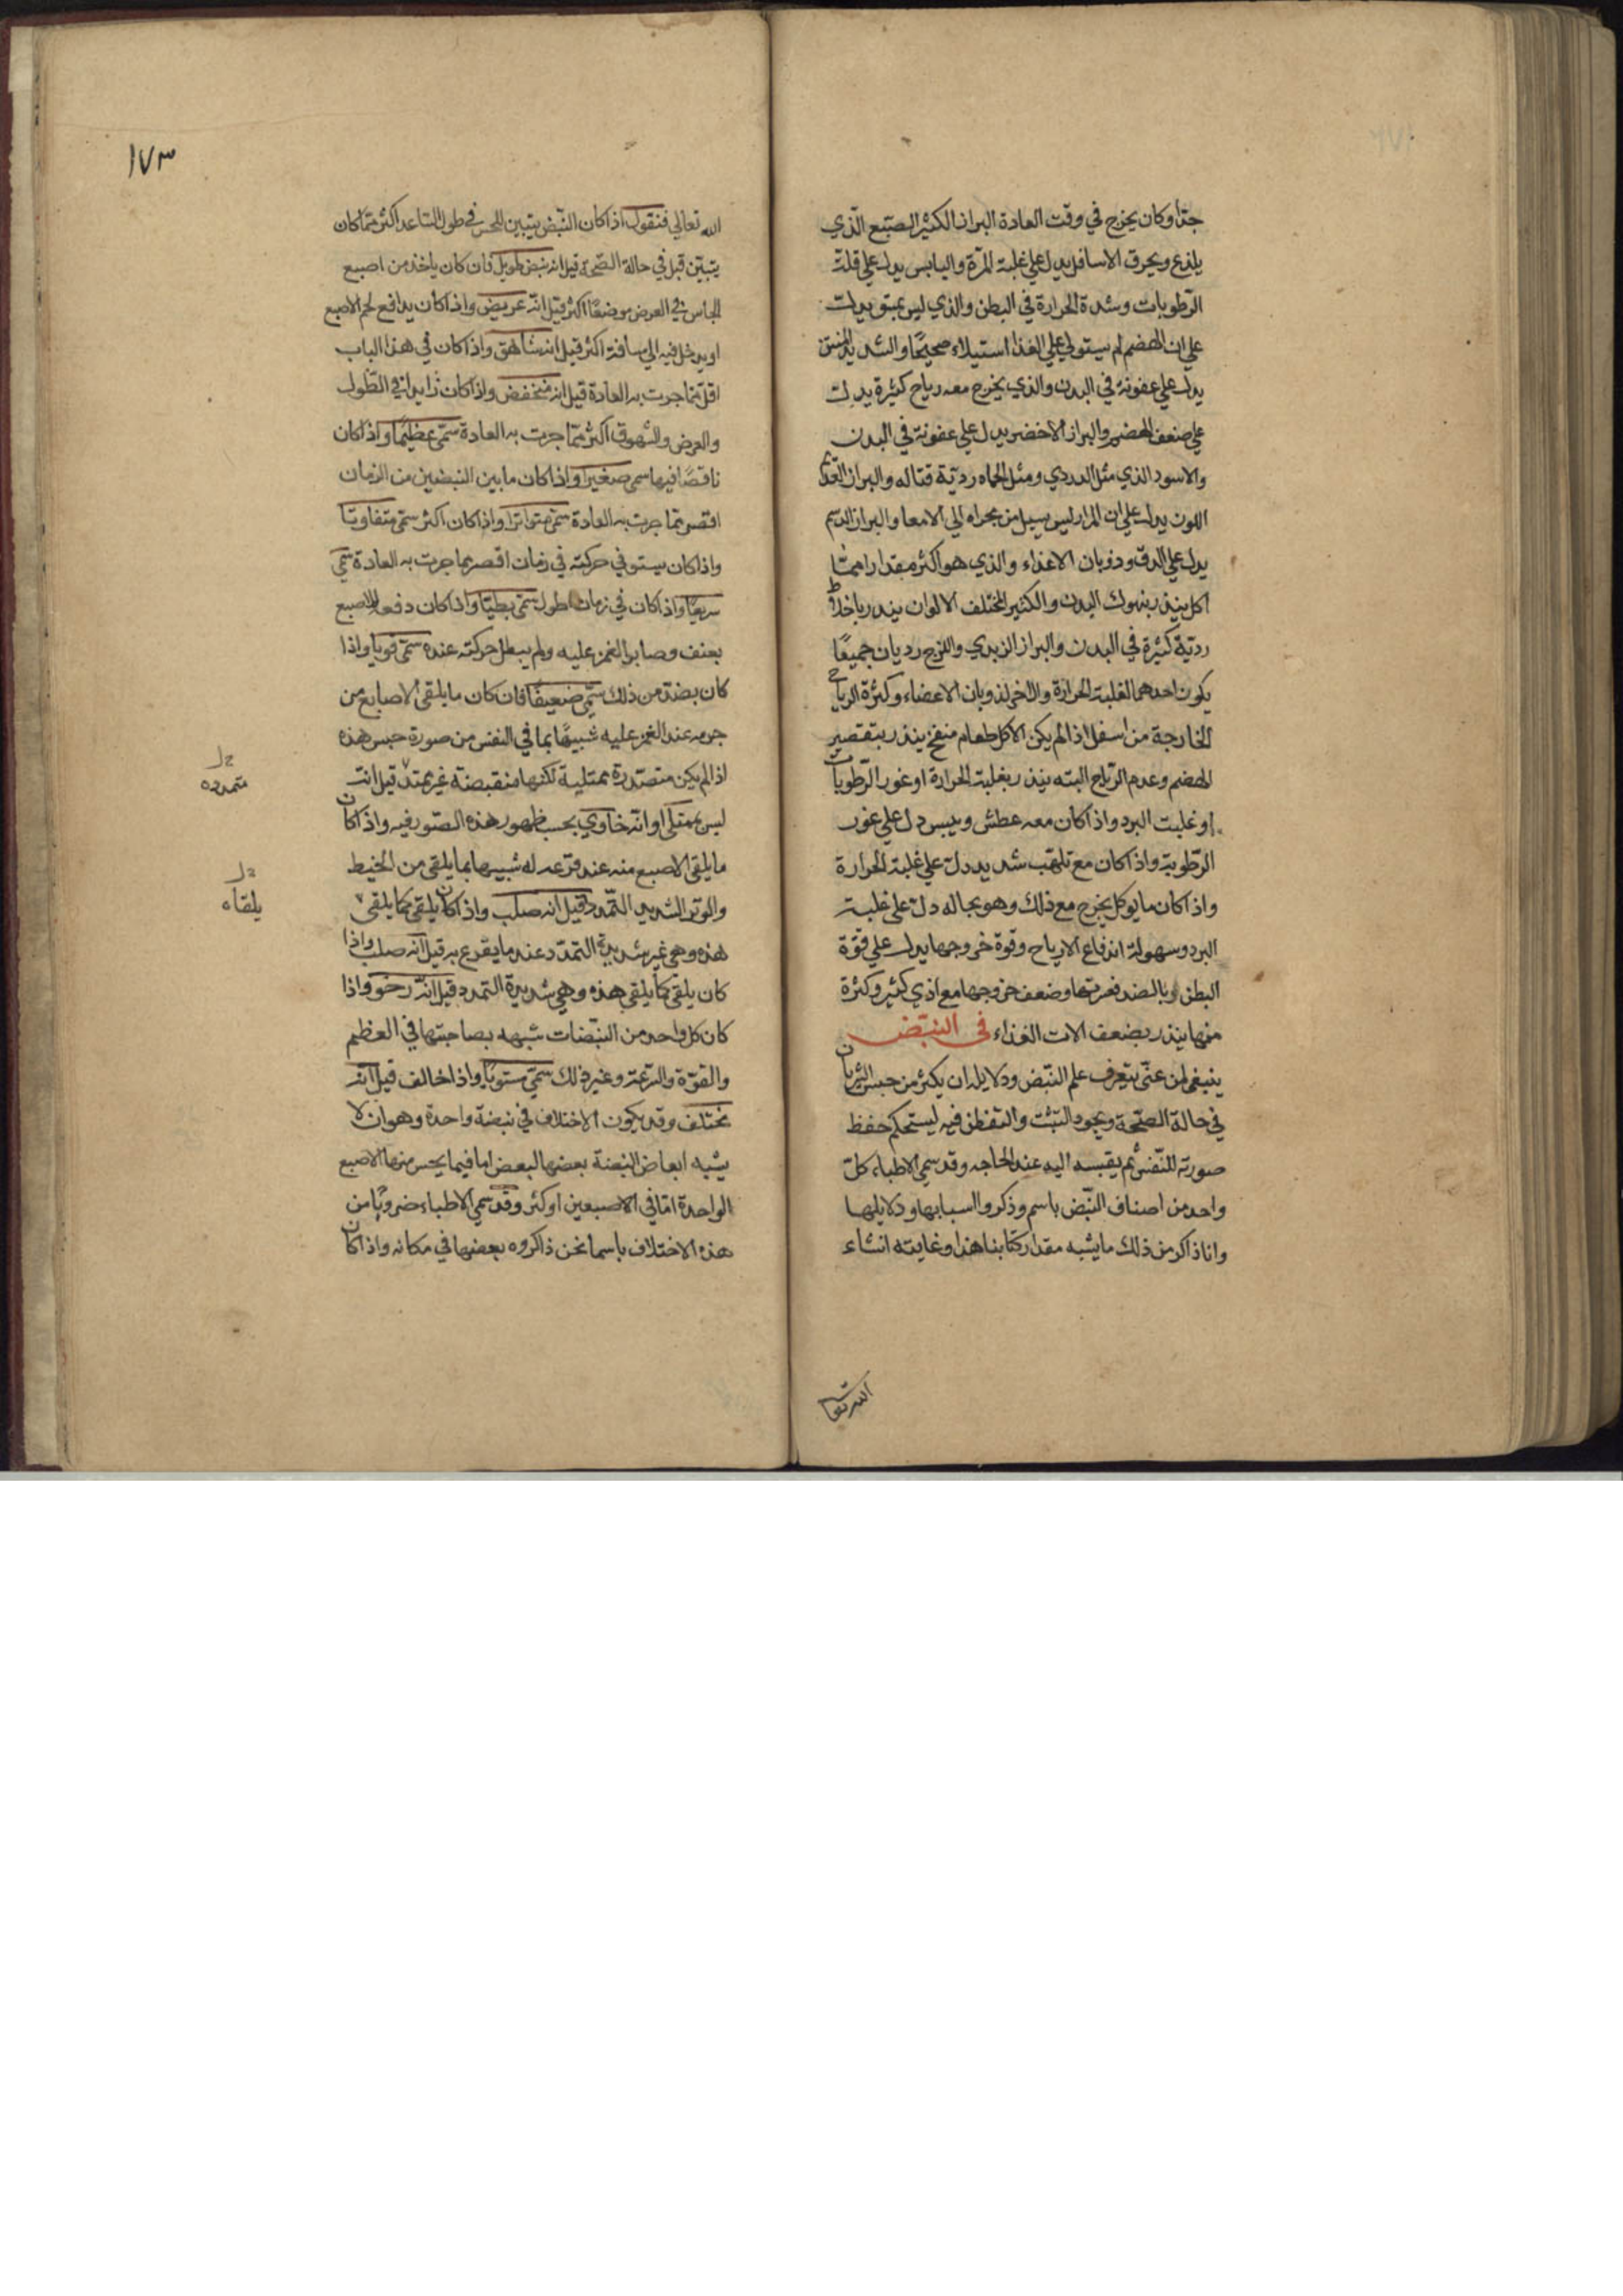 جدا وكان يخرج في وقت العادة البراز الكثير الصبغ الذي
يلذع ويحرق الاسافل يدل علي غلبة المرة واليابس يدل علي قلة
الرطوبات وشدة الحرارة في البطن والذي ليس بمستو يدل
علي ان الهضم لم يستولي علي الغذا استيلاء صحيحًا والشديد المنتن
يدل علي عفونة في البدن والذي يخرج معه رياح كثيرة يدل
علي ضعف الهضم والبراز الاخضر يدل علي عفونة في البدن
والاسود الذي مثل الدردي ومثل الحماه ردية قتاله والبراز العديم
اللون يدل علي ان المرار ليس يسيل من مجراه الي الامعا والبراز الدسم
يدل علي الدق وذوبان الاعضاء والذي هو اكثر مقدارا مما
اكل ينذر بنهوك البدن والكثير المختلف الالوان ينذر باخلاط
ردية كثيرة في البدن والبراز الزبدي واللزج رديان جميعًا
يكون احدهما لغلبة الحرارة والاخر لذوبان الاعضاء وكثرة الرياح
الخارجة من اسفل اذا لم يكن الاكل طعام منفخ ينذر بتقصير
الهضم وعدم الرياح البته ينذر بغلبة الحرارة او غور الرطوبات
او غلبت البرد واذا كان معه عطش ويبس دل علي غور
الرطوبة واذا كان مع تلهب شديد دل علي غلبة الحرارة
واذا كان ما يوكل يخرج مع ذلك وهو بحاله دل علي غلبة
البرد وسهولة اندفاع الارياح وقوة خروجها يدل علي قوة
البطن وبالضد فعرتها وضعف خروجها مع اذي كثير وكثرة
منها ينذر بضعف الات الغذاء في النبض
ينبغي لمن عني بتعرف علم النبض ودلايله ان يكثر من جس الشريان
في حالة الصحة ويجود التثبت والتفطن فيه ليستحكم حفظ
صورته للنفس ثم يقيسه اليه عند الحاجه وقد سمي الاطباء كل
واحد من اصناف النبض باسم وذكروا اسبابها ودلايلها
وانا ذاكر من ذلك ما يشبه مقدار كتابنا هذا وغايته انشاء
الله تعالي
١٧٣
الله تعالي فنقول اذا كان النبض يتبين للحس في طول الساعد اكثر مما كان
يتبين قبل في حالة الصحة قيل انه نبض طويل فان كان ياخذ من اصبع
الجاس في العرض موضعًا اكثر قيل انه عريض واذا كان يدافع لحم الاصبع
او يدخل فيه الي مسافة اكثر قيل انه شاهق واذا كان في هذا الباب
اقل مما جرت به العادة قيل انه منخفض واذا كان زايدا في الطول
والعرض والشهوق اكثر مما جرت به العادة سمي عظيمًا واذا كان
ناقصًا فيها سمي صغيرا واذا كان ما بين النبضين من الزمان
اقصر مما جرت به العادة سمي متواترا واذا كان اكثر سمي متفاوتا
واذا كان يستوفي حركته في زمان اقصر مما جرت به العادة سمي
سريعًا واذا كان في زمان اطول سمي بطيًا واذا كان دفعه للاصبع
بعنف وصابر الغمز عليه ولم يبطل حركته عنده سمي قويا واذا
كان بضد من ذلك سمي ضعيفًا فان كان ما يلقي الاصابع من
جرمه عند الغمز عليه شبيهًا بما في النفس من صورة حبس هذه
اذا لم يكن متصدرة ممتلية لكنها منقبضة غير ممتد قيل انه
ليس بممتلي او انه خاوي بحسب ظهور هذه الصور فيه واذا كان
ما يلقي الاصبع منه عند قرعه له شبيها بما يلقي من الخيط
والوتر الشديد التمدد قيل انه صلب واذا كان يلقي كما يلقي
هذه وهي غير شديدة التمدد عند ما يقرع به قيل انه صلب واذا
كان يلقي كما يلقي هذه وهي شديدة التمدد قيل انه رخو واذا
كان كل واحد من النبضات شبيهه بصاحبتها في العظم
والقوة والسرعة وغير ذلك سمي مستويا واذا خالف قيل انه
مختلف وقد يكون الاختلاف في نبضة واحدة وهو ان لا
يشبه ابعاض النبضة بعضها البعض اما فيما يحس منها الاصبع
الواحدة اما في الاصبعين او كثر وقد سمي الاطباء ضروبًا من
هذه الاختلاف باسما نحن ذاكروه بعضها في مكانه واذا كان
متمدده
يلقاه